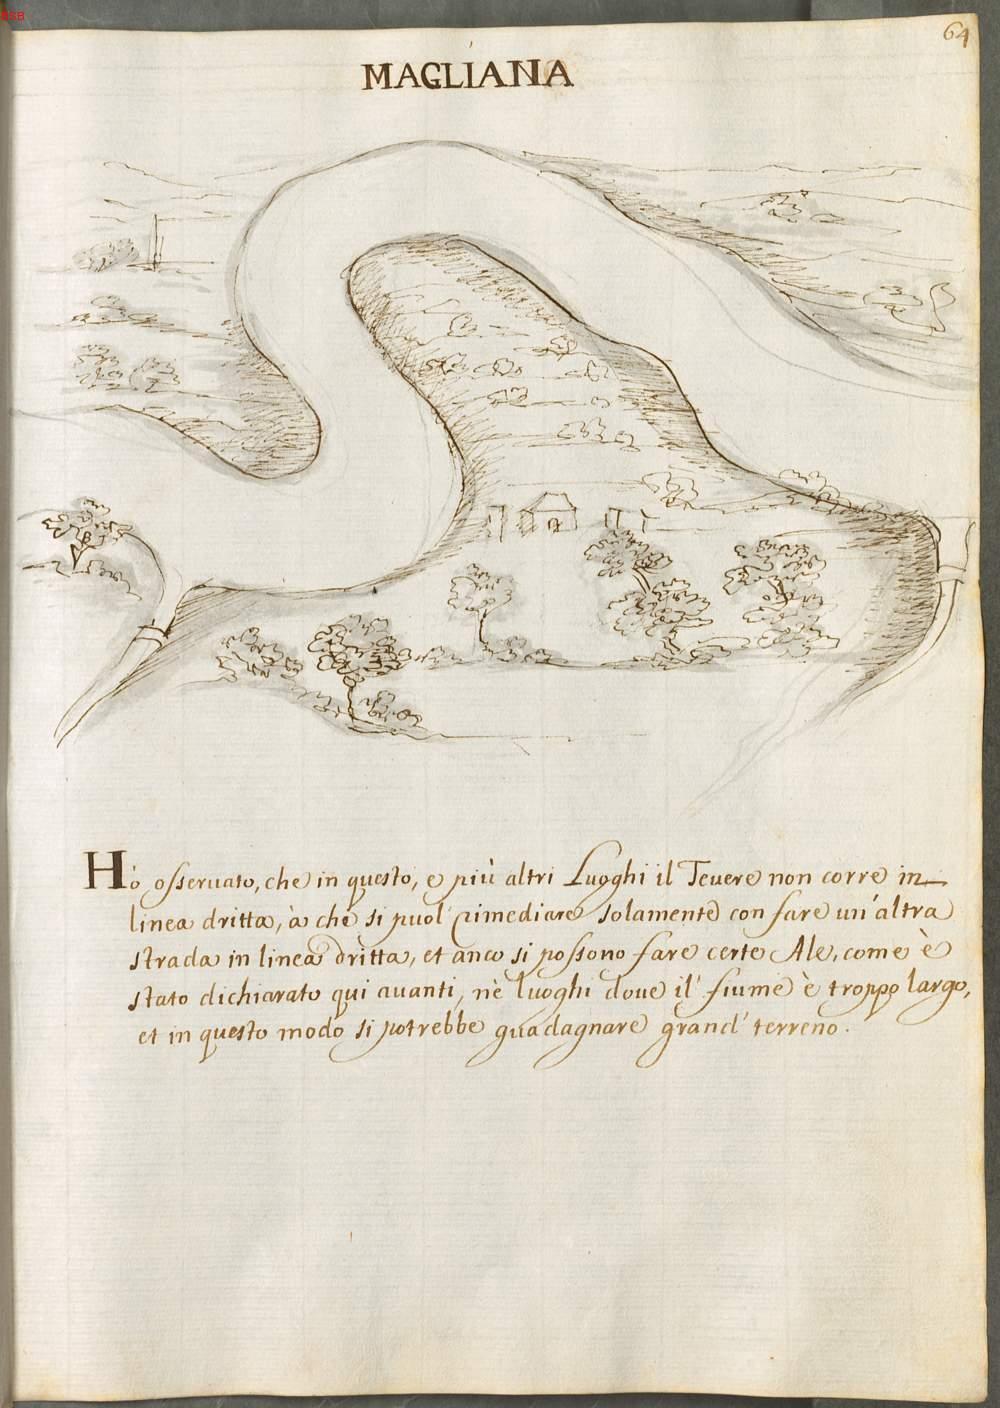 BSB
64
MAGLIANA
Hò osseruato, che in questo, e più altri Luoghi il Teuere non corre in
linea dritta, à che si puol' rimediare solamente con fare un'altra
strada in linea dritta, et anco si possono fare certe Ale, come è
stato dichiarato qui auanti, nè luoghi doue il' fiume è troppo largo,
et in questo modo si potrebbe guadagnare grand' terreno.